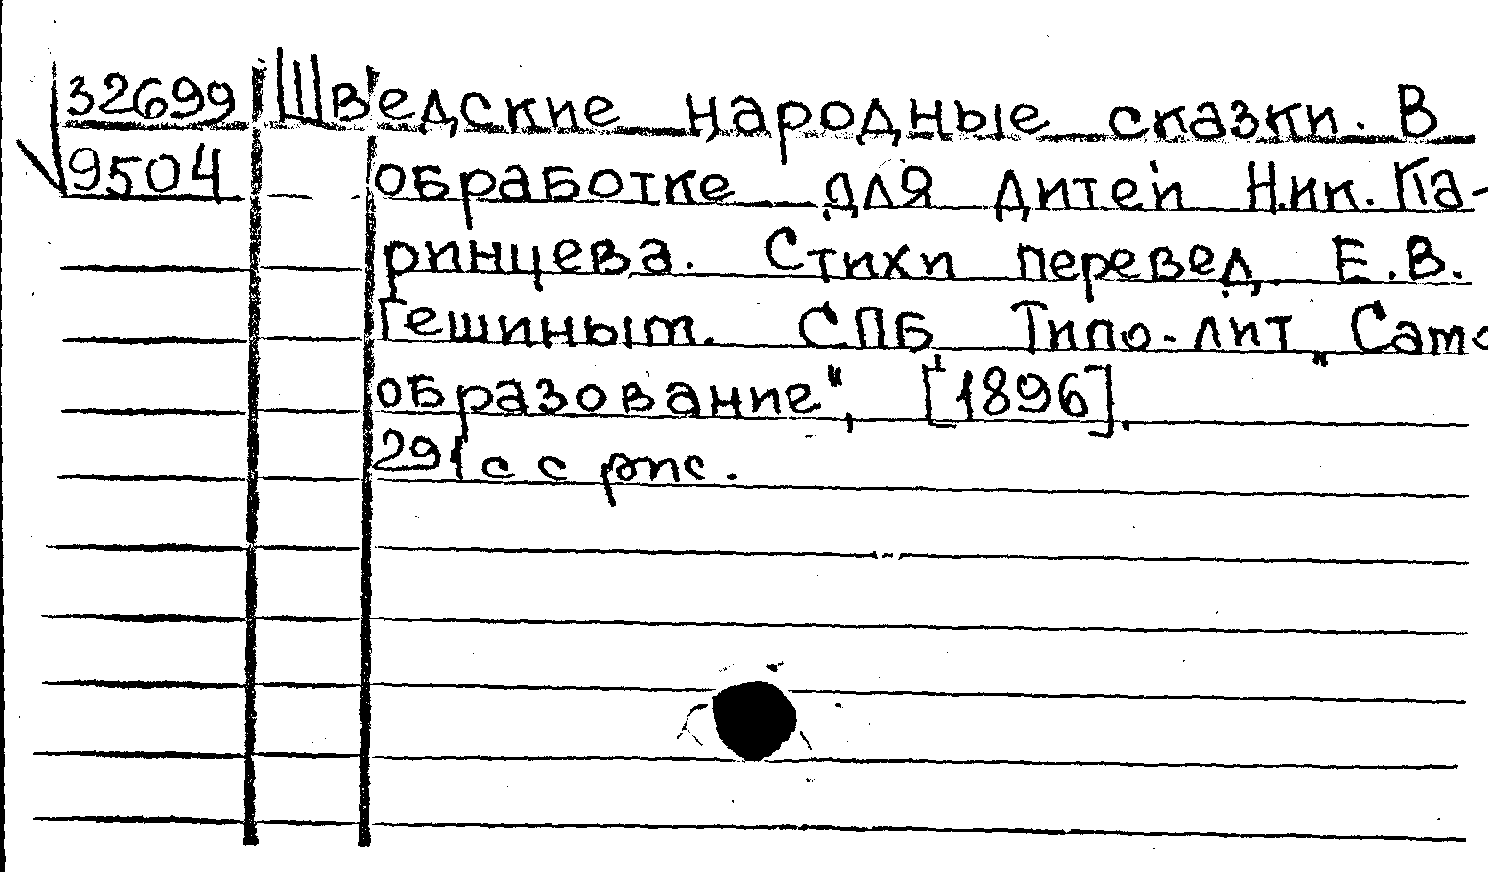 32699 Шведские народные сказки. В
9504 обработке для дитей Ник. Ка-
ринцева. Стихи перевед. Е.В.
Гешиным. СПБ Типо-лит „Само
образование", [1896].
291 с с рис.